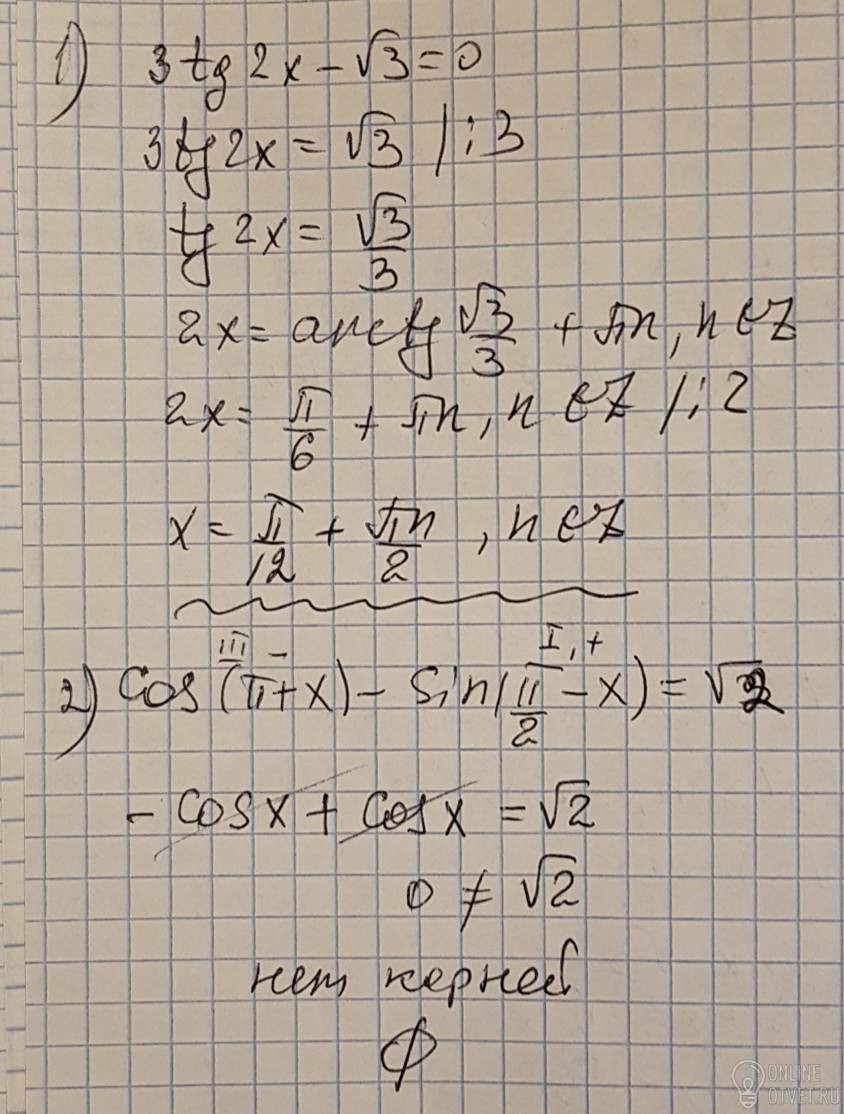 1) 3 tg 2x - √3 = 0
3 tg 2x = √3 /:3
tg 2x = √3/3
2x = arctg √3/3 + πn, n ∈ Z
2x = π/6 + πn, n ∈ Z /:2
x = π/12 + πn/2, n ∈ Z
III - I, +
2) cos (π + x) - sin(π/2 - x) = √2
- cos x + cos x = √2
0 ≠ √2
нет корней
∅
ONLINE
OTVET.RU